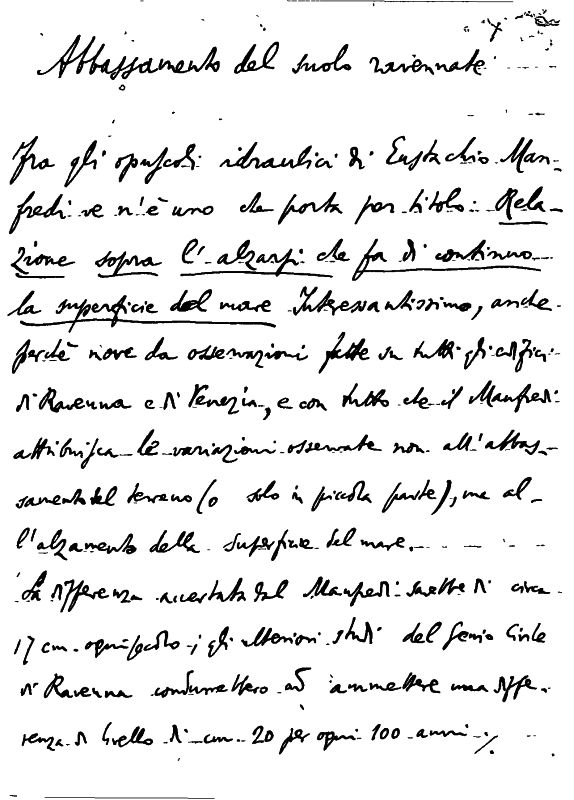 Abbassamento del suolo ravennate
Fra gli opuscoli idraulici di Eustachio Man-
fredi ve n'è uno che porta per titolo: Rela-
zione sopra l'alzarsi che fa di continuo
la superficie del mare Interessantissimo, anche
perchè move da osservazioni fatte su tutti gli edifici
di Ravenna e di Venezia, e con tutto che il Manfredi
attribuisca le variazioni osservate non all'abbas-
samento del terreno (o solo in piccola parte), ma al-
l'alzamento della superficie del mare.
La differenza accertata dal Manfredi sarebbe di circa
17 cm. ogni secolo; gli ulteriori studi del Genio Civile
di Ravenna condurrebbero ad ammettere una diffe-
renza di livello di cm. 20 per ogni 100 anni.